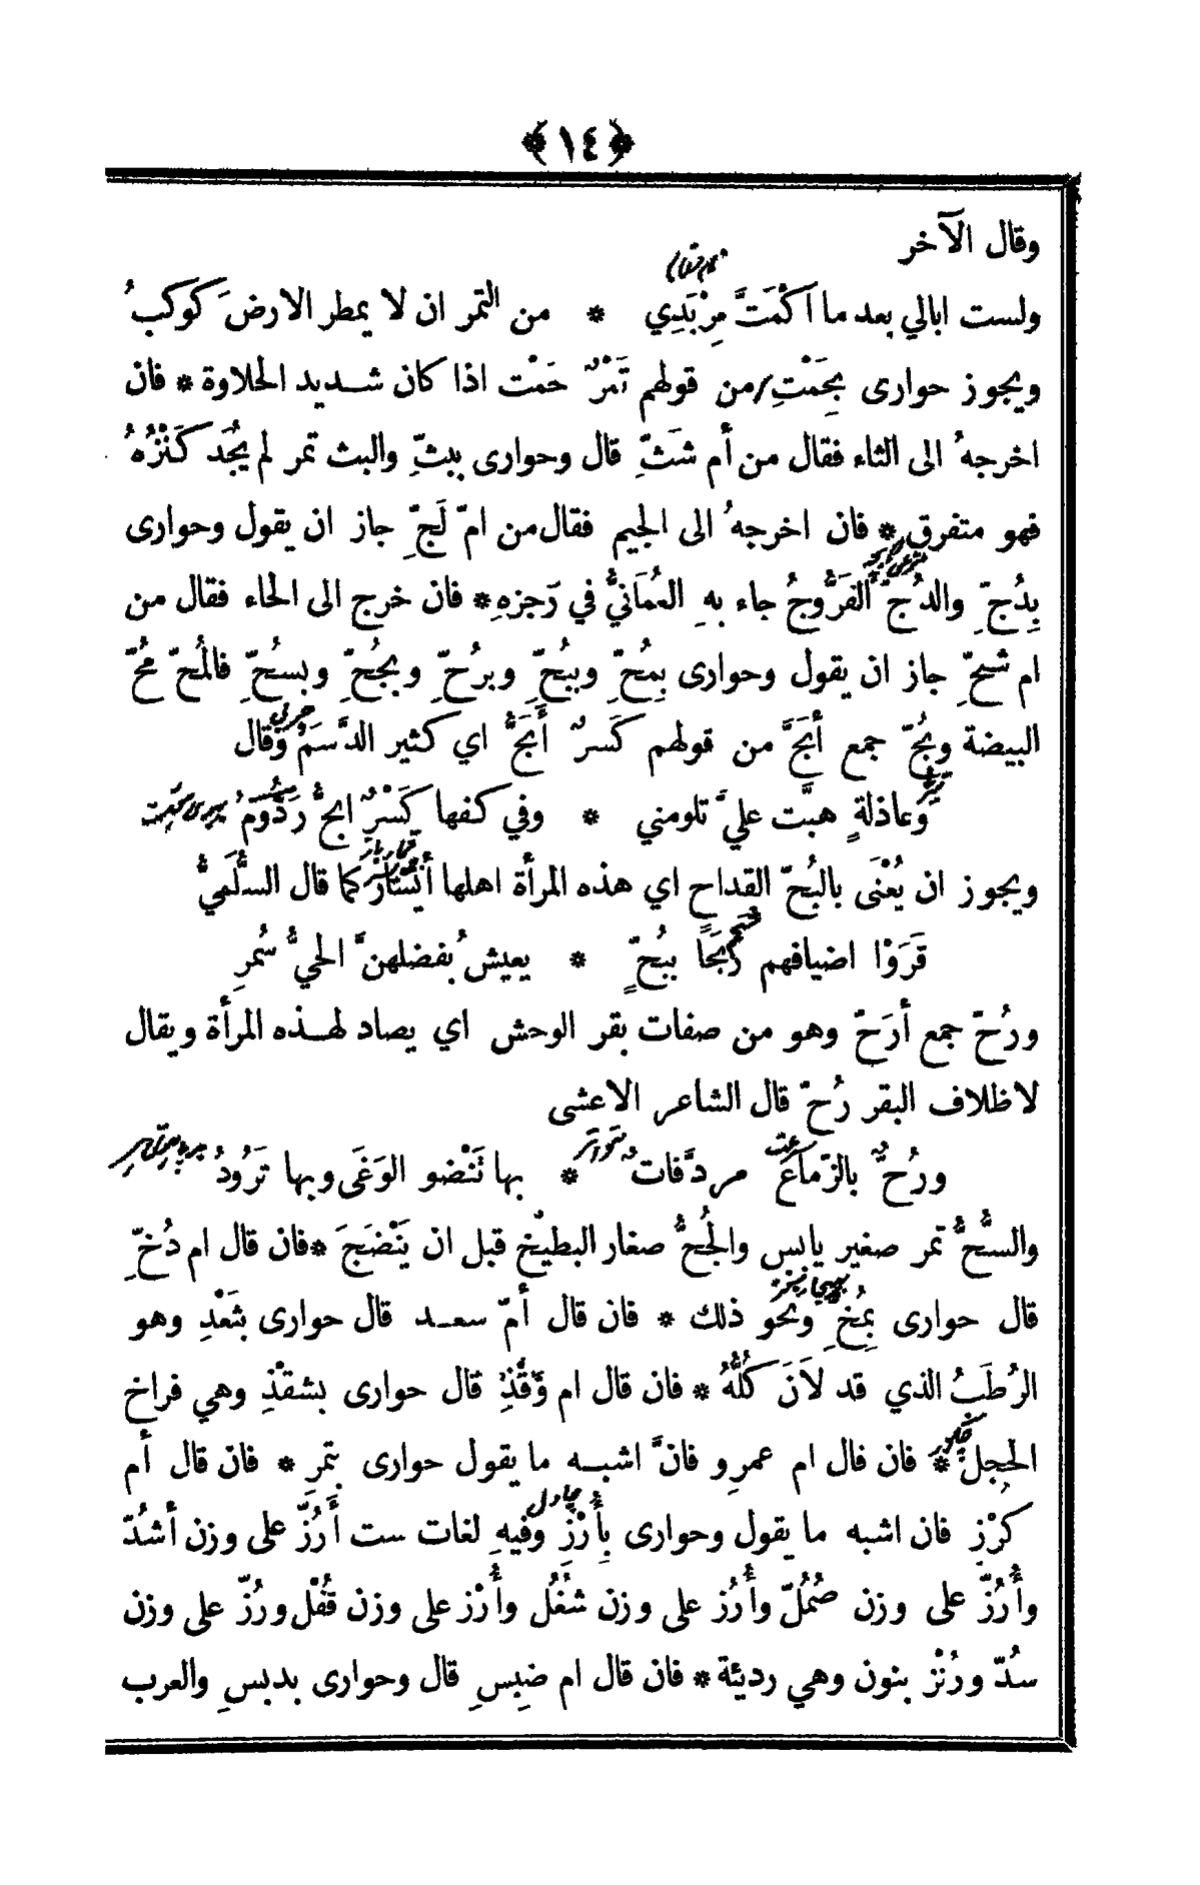 ﴿١٤﴾
وقال الآخر
ولست ابالي بعد ما اَكْمَتَّ مِرْبَدِي * من التمر ان لا يمطر الارضَ كوكبُ
ويجوز حوارى بِحَمْتِ من قولهم تَمْرٌ حَمْت اذا كان شديد الحلاوة * فان
اخرجهُ الى الثاء فقال من أم شَثّ قال وحوارى ببثّ والبث تمر لم يُجَد كَنْزُهُ
فهو متفرق * فان اخرجهُ الى الجيم فقال من امّ لَجّ جاز ان يقول وحوارى
بِدُجّ والدُجّ الفَرُّوجُ جاء بهِ العُمَانيُّ في رَجزهِ * فان خرج الى الحاء فقال من
ام شحّ جاز ان يقول وحوارى بِمُحّ وببُحّ وبرُحّ وبجُحّ وبسُحّ فالمُحّ مُحّ
البيضة وبُحّ جمع أَبَحَّ من قولهم كَسرٌ أَبَحُّ اي كثير الدَّسَم وقال
وعاذلةٍ هبَّت عليَّ تلومني * وفي كفها كَسْرٌ ابحُّ رَذُومُ
ويجوز ان يُعْنَى بالبُحّ القداح اي هذه المرأة اهلها أَيْسَار كما قال السُّلَمِيُّ
قَرَوْا اضيافهم رَبَحًا ببُحّ * يعيش بفضلهنَّ الحيُّ سُمرِ
ورُحّ جمع أَرَحّ وهو من صفات بقر الوحش اي يصاد لهذه المرأة ويقال
لاظلاف البقر رُحّ قال الشاعر الاعشى
ورُحٌّ بالزّماع مردَّفات * بها تَنْضو الوَغَى وبها تَرُودُ
والسُّحُّ تمر صغير يابس والجُحُّ صغار البطيخ قبل ان يَنْضَجَ * فان قال ام دُخّ
قال حوارى بِمُخّ ونحو ذلك * فان قال أمّ سعد قال حوارى بثَعْدِ وهو
الرُطَبُ الذي قد لاَنَ كُلُّهُ * فان قال ام وَقْذِ قال حوارى بشقْذِ وهي فراخ
الحجل * فان قال ام عمرِو فانَّ اشبه ما يقول حوارى بتمرِ * فان قال أم
كرْزِ فان اشبه ما يقول وحوارى بِأَرْزِ وفيهِ لغات ست أَرُزّ على وزن أشُدّ
وأُرُزّ على وزن صُمُلّ وأُرُز على وزن شُغُل وأُرْز على وزن قُفْل ورُزّ على وزن
سُدّ ورُنْز بنون وهي رديئة * فان قال ام ضبِسِ قال وحوارى بدبسِ والعرب